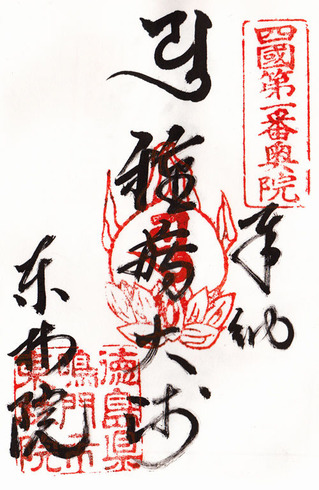 四國第一番奥院
奉納
種蒔大師
東林院
徳島県
鳴門市
東林院